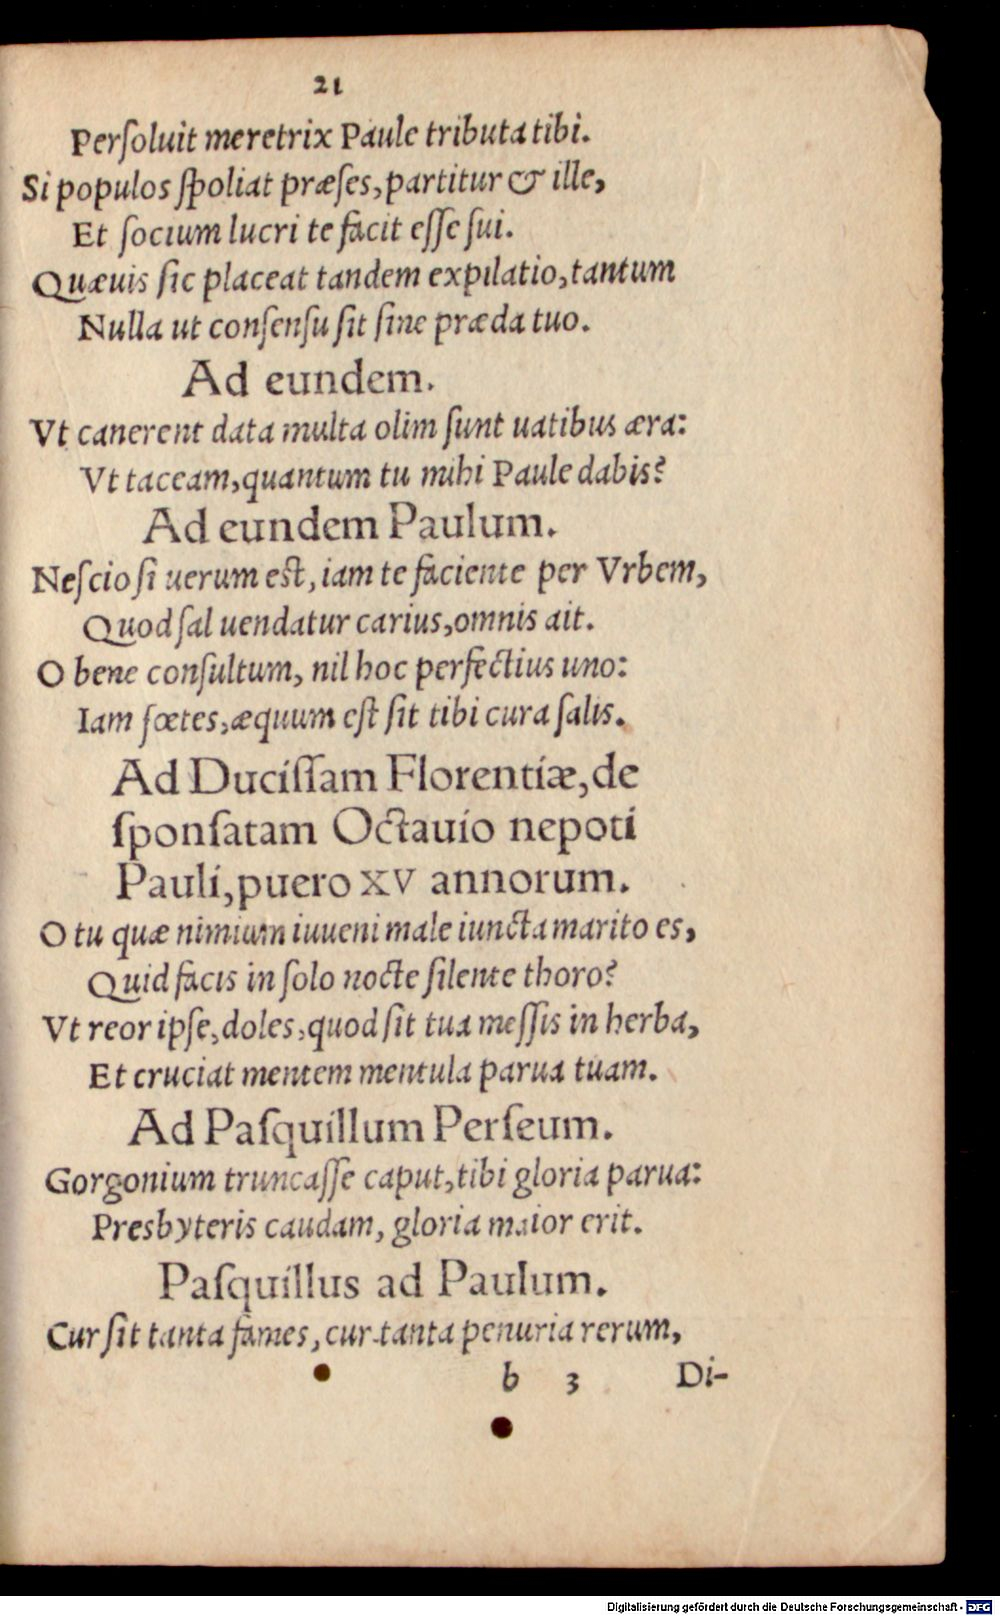 21
Perſoluit meretrix Paule tributa tibi.
Si populos ſpoliat præſes, partitur & ille,
Et ſocium lucri te facit eſſe ſui.
Quæuis ſic placeat tandem expilatio, tantum
Nulla ut conſenſu ſit ſine præda tuo.
Ad eundem.
Vt canerent data multa olim ſunt uatibus æra:
Vt taceam, quantum tu mihi Paule dabis?
Ad eundem Paulum.
Neſcio ſi uerum eſt, iam te faciente per Vrbem,
Quod ſal uendatur carius, omnis ait.
O bene conſultum, nil hoc perfectius uno:
Iam fœtes, æquum eſt ſit tibi cura ſalis.
Ad Duciſſam Florentiæ, de
ſponſatam Octauio nepoti
Pauli, puero XV annorum.
O tu quæ nimium iuueni male iuncta marito es,
Quid facis in ſolo nocte ſilente thoro?
Vt reor ipſe, doles, quod ſit tua meſſis in herba,
Et cruciat mentem mentula parua tuam.
Ad Paſquillum Perſeum.
Gorgonium truncaſſe caput, tibi gloria parua:
Presbyteris caudam, gloria maior erit.
Paſquillus ad Paulum.
Cur ſit tanta fames, cur tanta penuria rerum,
b 3 Di-
Digitalisierung gefördert durch die Deutsche Forschungsgemeinschaft - DFG